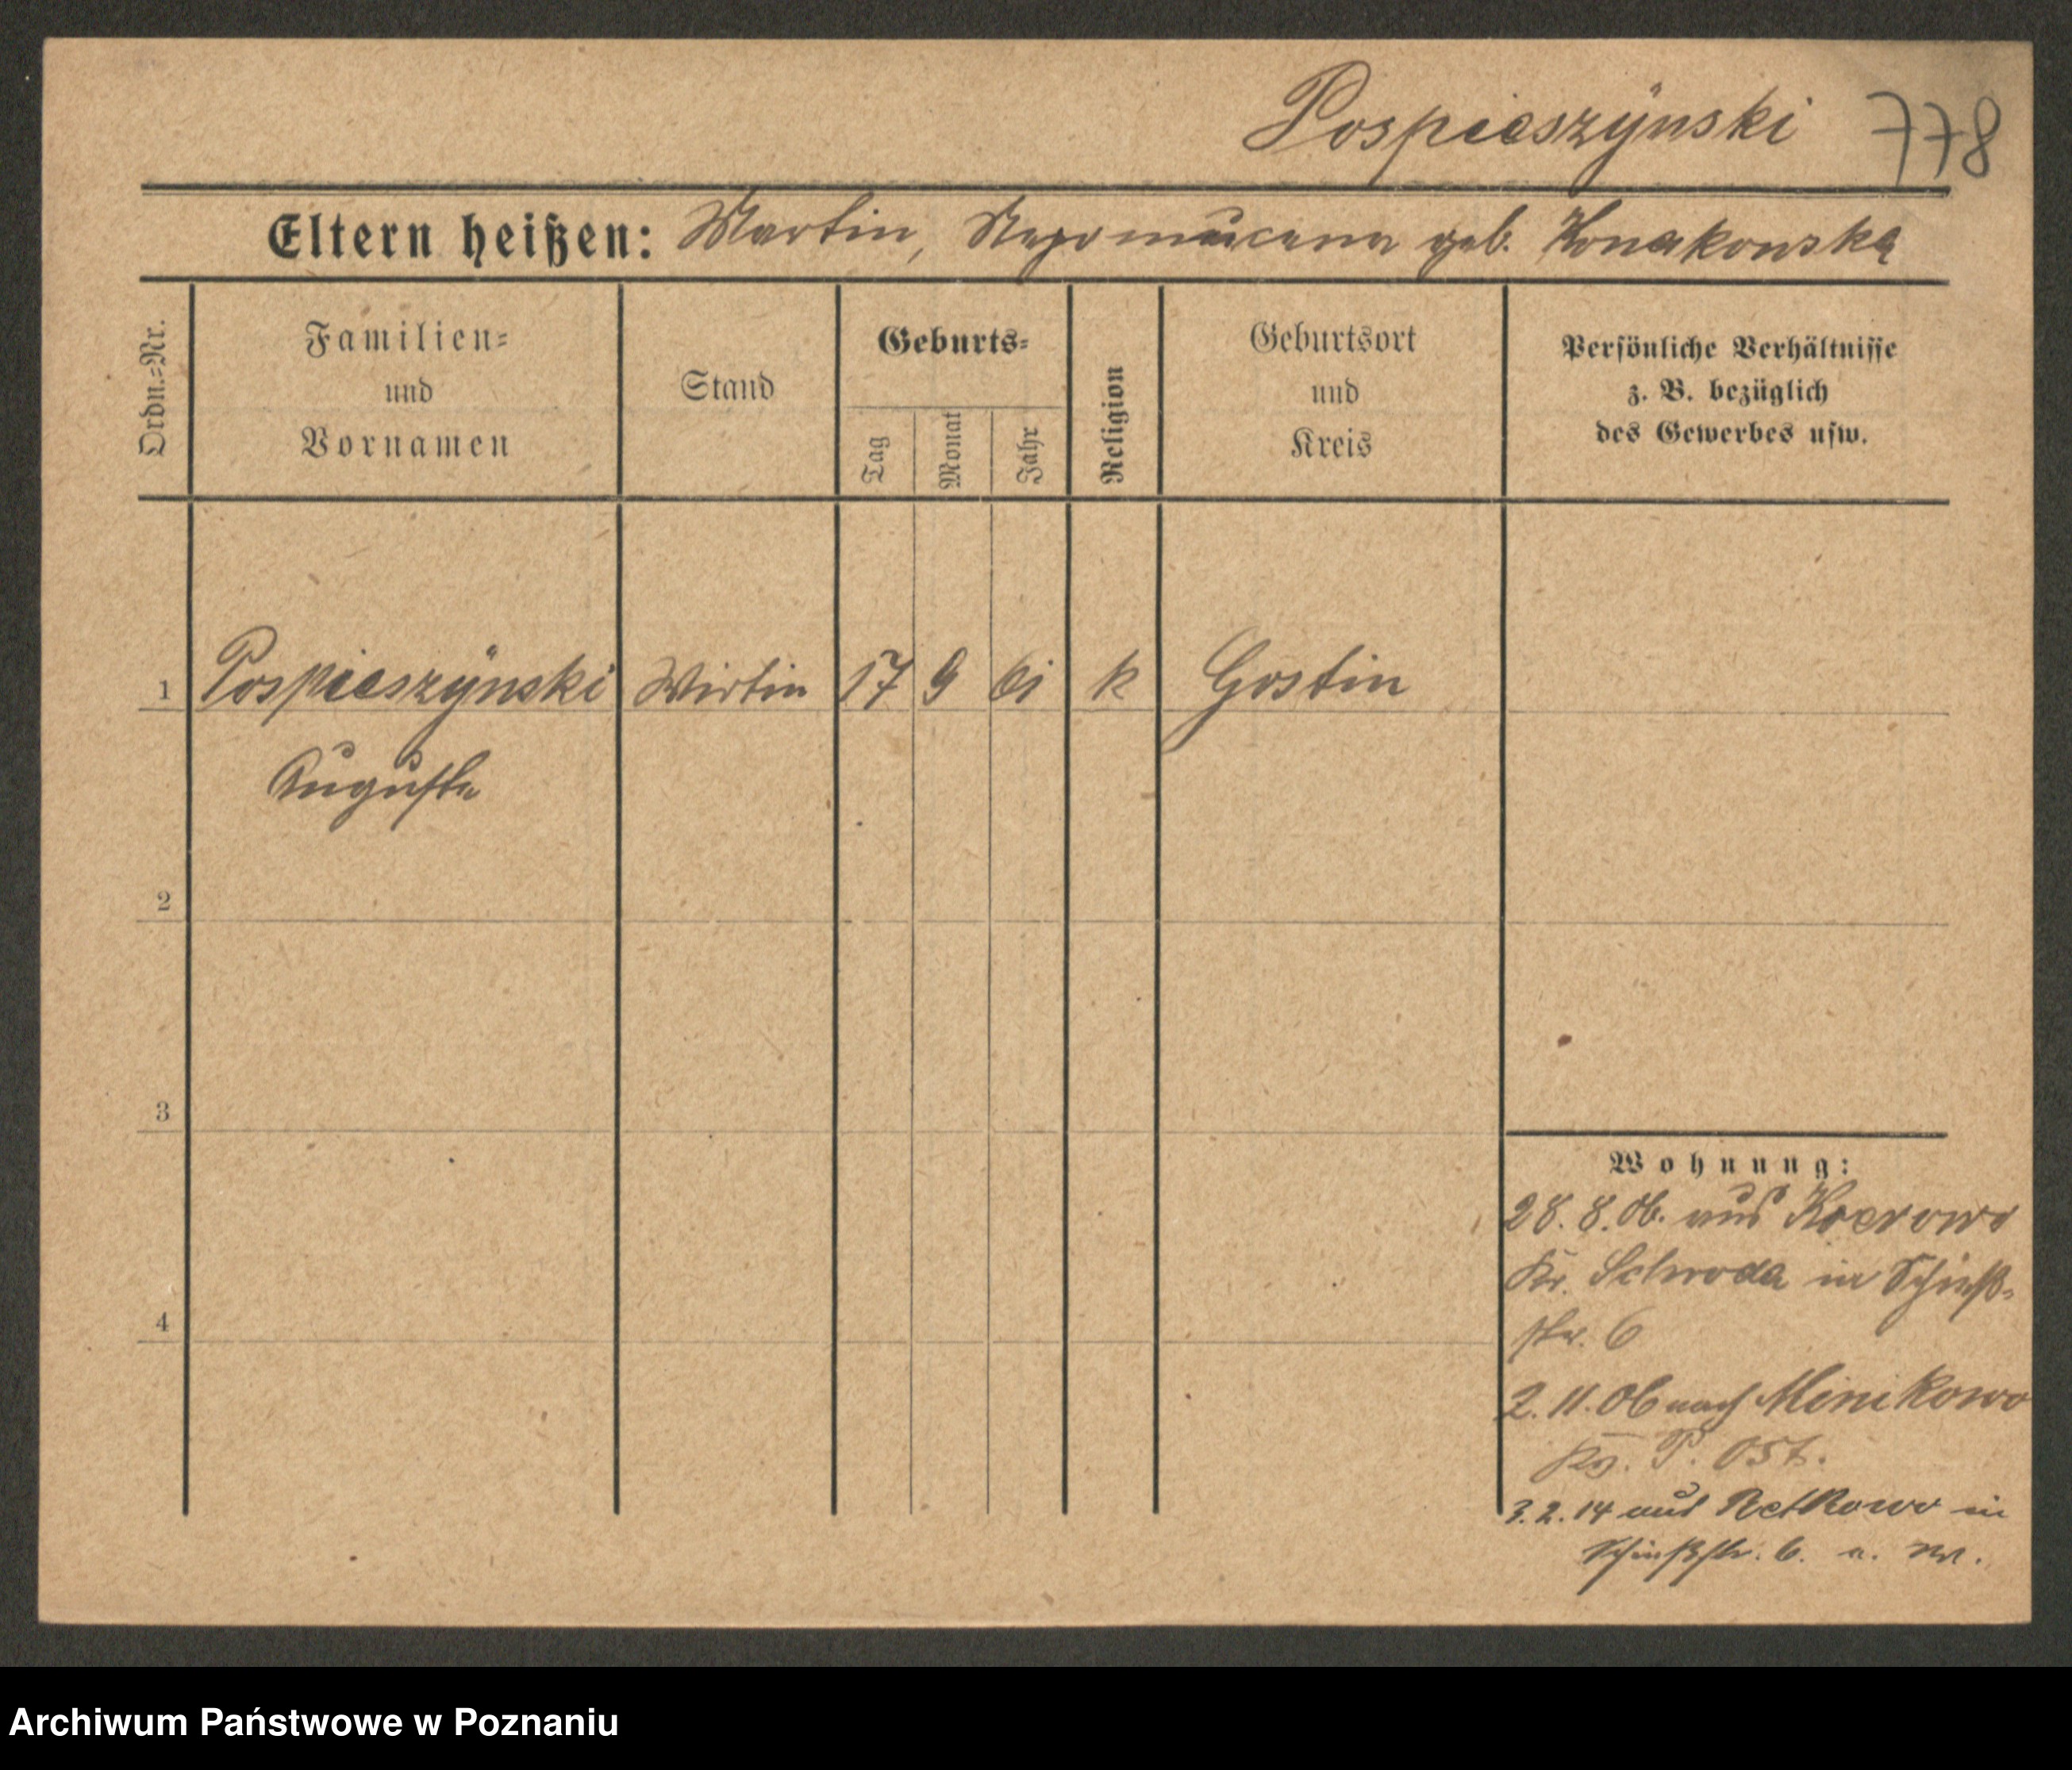 Pospieszyński 778
Eltern heißen: Martin, Nepomucena geb. Konakowska
Ordn.=Nr.
Familien=
und
Vornamen
Stand
Geburts=
Tag
Monat
Jahr
Religion
Geburtsort
und
Kreis
Persönliche Verhältnisse
z. B. bezüglich
des Gewerbes usw.
1 Pospieszyński Wirtin 17 9 61 k Gostin
Auguste
2
3
4
Wohnung:
28. 8. 06. aus
Kr. Schroda in Schieß-
str. 6
2. 11. 06 nach Minikowo
Kr. P. Ost.
3. 2. 14 aus Retkowo in
Schießstr. 6.
Archiwum Państwowe w Poznaniu